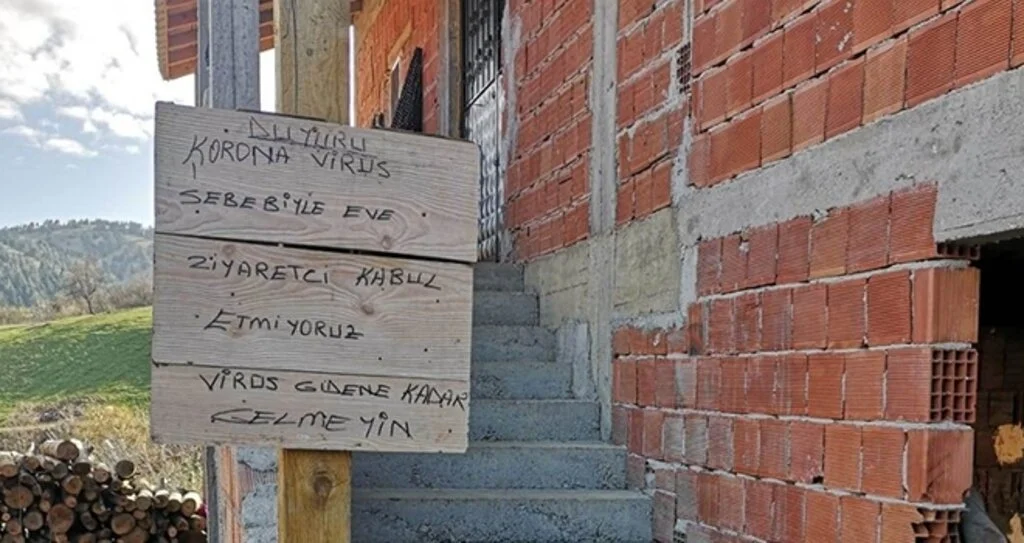 DUYURU
KORONA VİRUS
SEBEBİYLE EVE
ZİYARETCİ KABUL
ETMİYORUZ
VİRUS GİDENE KADAR
GELMEYİN